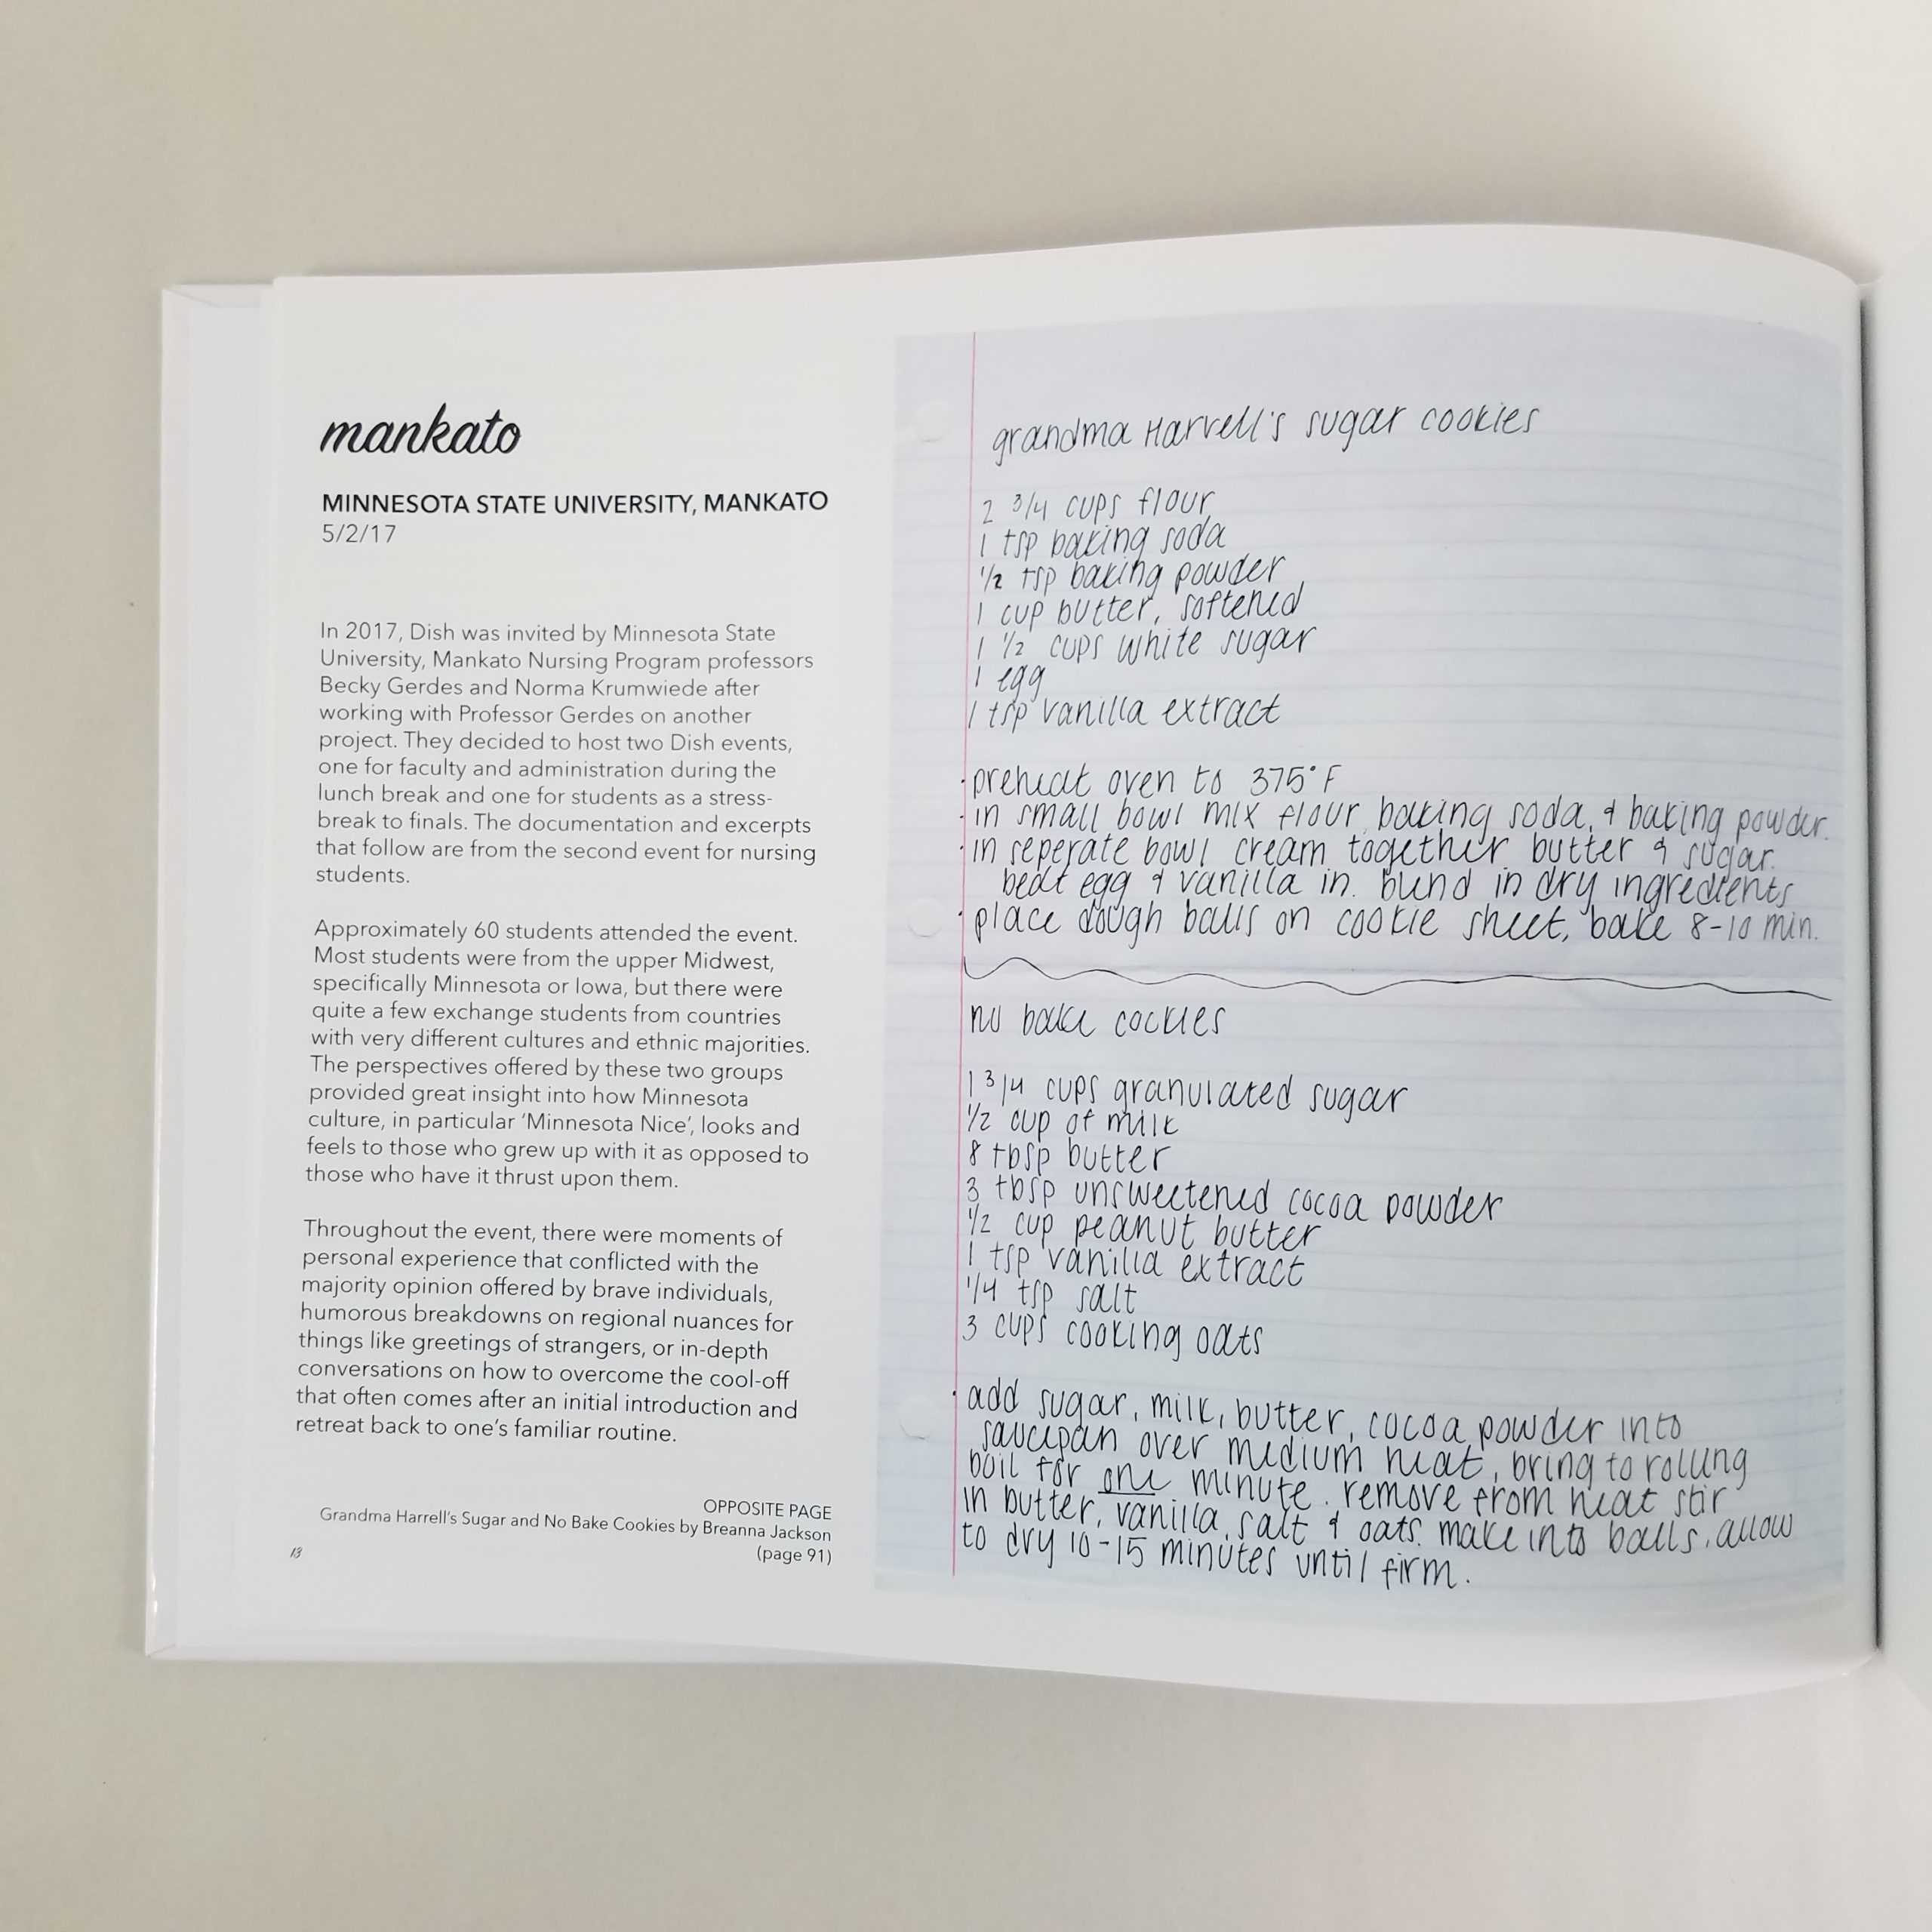 mankato
MINNESOTA STATE UNIVERSITY, MANKATO
5/2/17
In 2017, Dish was invited by Minnesota State
University, Mankato Nursing Program professors
Becky Gerdes and Norma Krumwiede after
working with Professor Gerdes on another
project. They decided to host two Dish events,
one for faculty and administration during the
lunch break and one for students as a stress-
break to finals. The documentation and excerpts
that follow are from the second event for nursing
students.
Approximately 60 students attended the event.
Most students were from the upper Midwest,
specifically Minnesota or Iowa, but there were
quite a few exchange students from countries
with very different cultures and ethnic majorities.
The perspectives offered by these two groups
provided great insight into how Minnesota
culture, in particular ‘Minnesota Nice’, looks and
feels to those who grew up with it as opposed to
those who have it thrust upon them.
Throughout the event, there were moments of
personal experience that conflicted with the
majority opinion offered by brave individuals,
humorous breakdowns on regional nuances for
things like greetings of strangers, or in-depth
conversations on how to overcome the cool-off
that often comes after an initial introduction and
retreat back to one’s familiar routine.
OPPOSITE PAGE
Grandma Harrell’s Sugar and No Bake Cookies by Breanna Jackson
(page 91)
13
grandma Harvell's sugar cookies
2 3/4 cups flour
1 tsp baking soda
1/2 tsp baking powder
1 cup butter, softened
1 1/2 cups white sugar
1 egg
1 tsp vanilla extract
·preheat oven to 375°F
·in small bowl mix flour, baking soda, & baking powder.
·in seperate bowl cream together butter & sugar.
beat egg & vanilla in. blend in dry ingredients
·place dough balls on cookie sheet, bake 8-10 min.
no bake cookies
1 3/4 cups granulated sugar
1/2 cup of milk
8 tbsp butter
3 tbsp unsweetened cocoa powder
1/2 cup peanut butter
1 tsp vanilla extract
1/4 tsp salt
3 cups cooking oats
·add sugar, milk, butter, cocoa powder into
saucepan over medium heat, bring to rolling
boil for one minute. remove from heat stir
in butter, vanilla, salt & oats. make into balls, allow
to dry 10-15 minutes until firm.